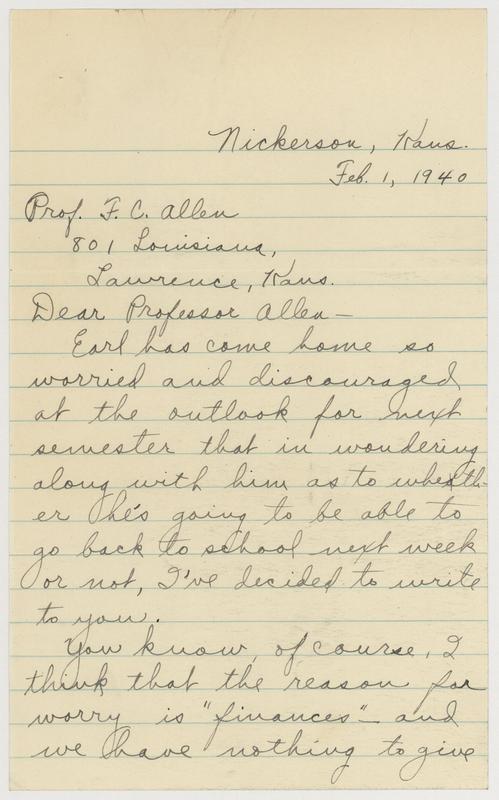 Nickerson, Kans.
Feb. 1, 1940
Prof. F. C. Allen
801 Louisiana,
Lawrence, Kans.
Dear Professor Allen—
Earl has come home so
worried and discouraged
at the outlook for next
semester that in wondering
along with him as to wheth-
er he's going to be able to
go back to school next week
or not, I've decided to write
to you.
You know, of course, I
think that the reason for
worry is "finances"— and
we have nothing to give